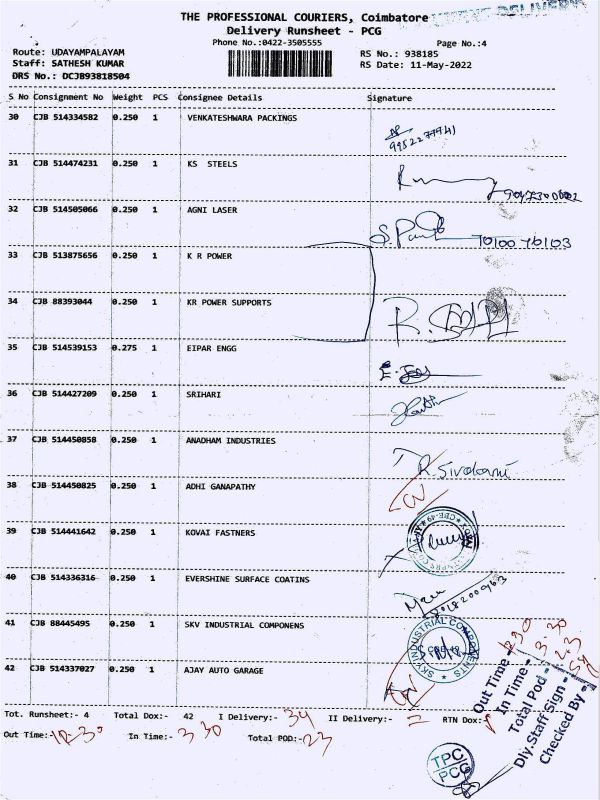 THE PROFESSIONAL COURIERS, Coimbatore
Delivery Runsheet - PCG
Phone No.:0422-3505555
Page No.:4
Route: UDAYAMPALAYAM
RS No.: 938185
Staff: SATHESH KUMAR
RS Date: 11-May-2022
DRS No.: DCJB93818504
S No Consignment No Weight PCS Consignee Details Signature
30 CJB 514334582 0.250 1 VENKATESHWARA PACKINGS
31 CJB 514474231 0.250 1 KS STEELS
32 CJB 514505066 0.250 1 AGNI LASER
70100 70103
33 CJB 513875656 0.250 1 K R POWER
34 CJB 88393044 0.250 1 KR POWER SUPPORTS
35 CJB 514539153 0.275 1 EIPAR ENGG
36 CJB 514427209 0.250 1 SRIHARI
37 CJB 514450858 0.250 1 ANADHAM INDUSTRIES
38 CJB 514450825 0.250 1 ADHI GANAPATHY
39 CJB 514441642 0.250 1 KOVAI FASTNERS
40 CJB 514336316 0.250 1 EVERSHINE SURFACE COATINS
41 CJB 88445495 0.250 1 SKV INDUSTRIAL COMPONENS
SKV INDUSTRIAL COMPONENTS
42 CJB 514337027 0.250 1 AJAY AUTO GARAGE
Tot. Runsheet:- 4 Total Dox:- 42 I Delivery:- 34 II Delivery:- 2 RTN Dox:-
Out Time:- In Time:- 3 30 Total POD:- 23
Out Time -
In Time:- 3.30
Total Pod - 23
Dly.Staff Sign -
Checked By -
TPC
PCG